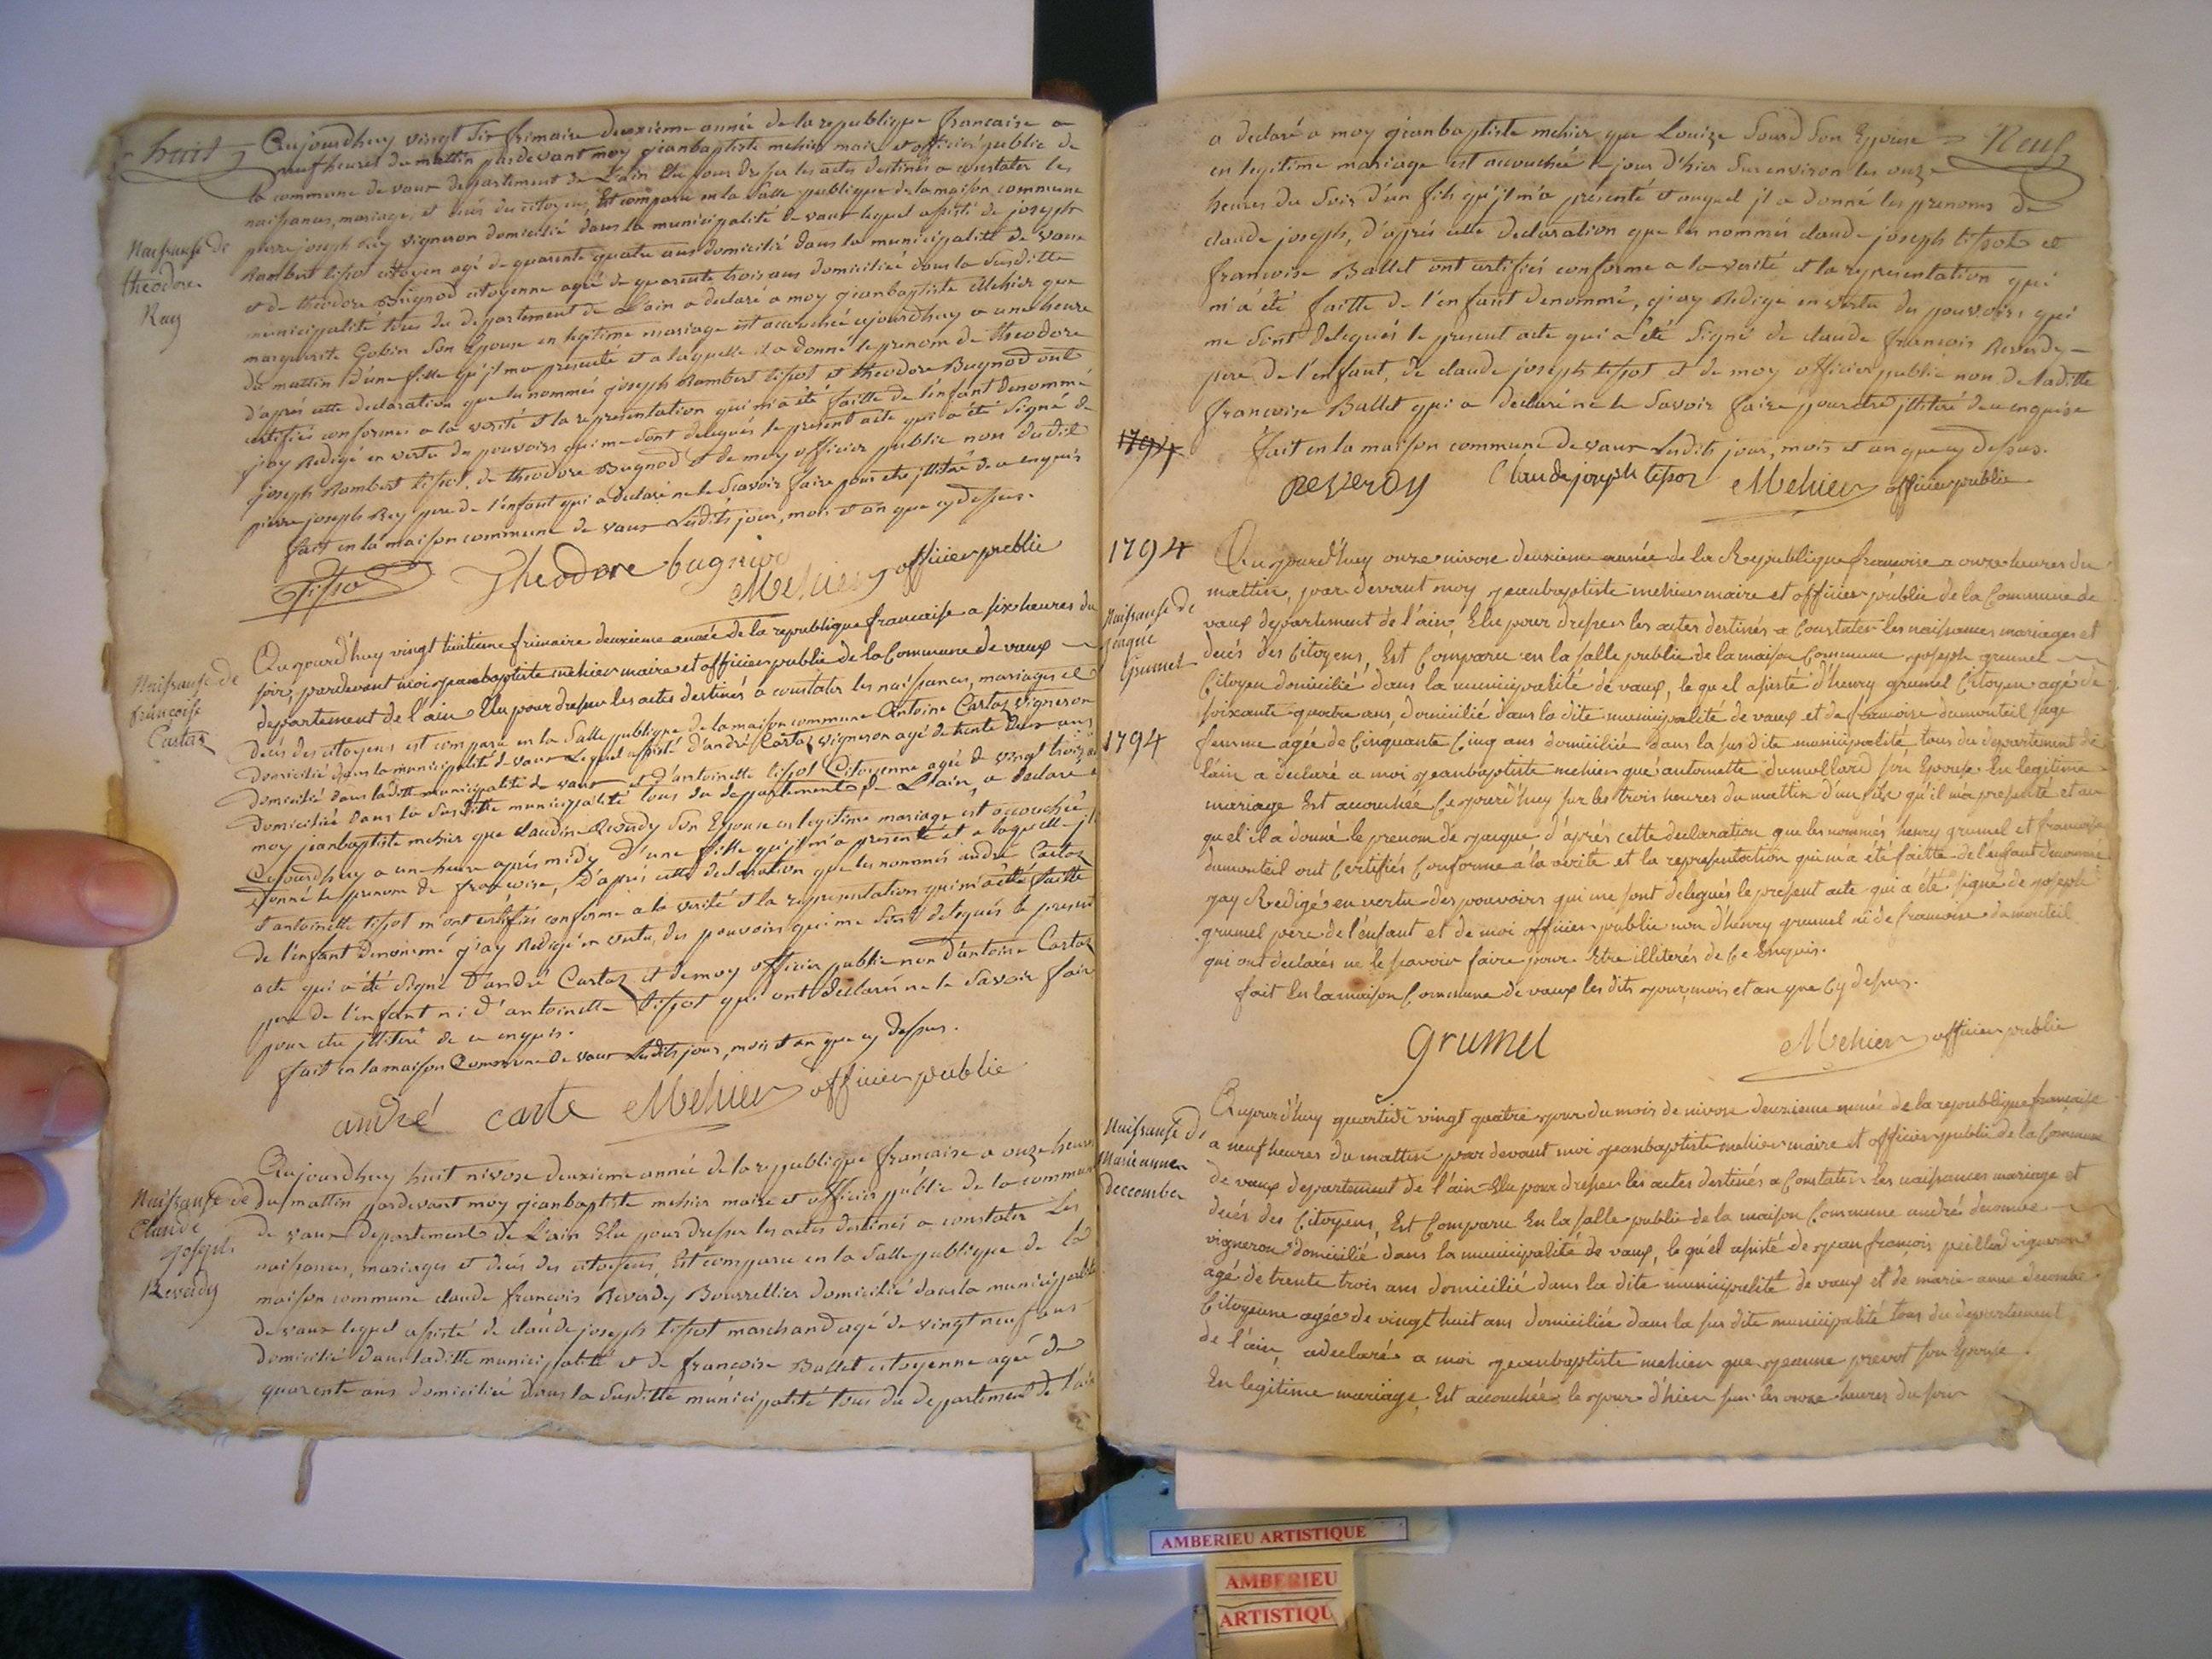 huit
Aujourdhuy vingt six frimaire deuxieme année de la republique francaise a
neuf heures du mattin pardevant moy jeanbaptiste mehier maire et officier public de
la commune de vaux departement de L'ain Elu pour dresser les actes destinés a constater les
naissances, mariages, et decés des citoyens, Est comparu en la Salle publique de la maison commune
pierre joseph Rey vigneron domicilié dans la municipalité de vaux lequel assisté de joseph
Rambert tissot citoyen agé de quarente quatre ans domicilié dans la municipalité de vaux
et de theodore Bugnod citoyenne agé de quarente trois ans domiciliée dans la susditte
municipalité tous du departement de L'ain a declaré a moy jeanbaptiste Mehier que
marguerite Gobin son Epouse en legitime mariage est accouchée ajourdhuy a une heure
du mattin d'une fille qu'jl ma presenté et a laquelle il a donné le prenom de theodore
d'aprés cette declaration que les nommés joseph Rambert tissot et theodore Bugnod ont
certifiés conformes a la verité et la representation qui m'a été faitte de l'enfant denommé
j'ay Redigé en vertu des pouvoirs qui me sont delegués le présent acte qui a été signé de
joseph Rambert tissot, de theodore Bugnod et de moy officier public non dudit
pierre joseph Rey pere de l'enfant qui a declaré ne le scavoir faire pour etre jlliteré de ce enquis
fait en la maison commune de vaux lesdits jour, mois et an que cy dessus.
Naissance de
théodore
Rey
Tissot Theodore bugniod
Mehier officier public
Aujourd'huy vingt huitieme frimaire deuxieme année de la republique francaise a six heures du
soir, pardevant moi jeanbaptiste mehier maire et officier public de la Commune de vaux
departement de l'ain Elu pour dresser les actes destinés a constater les naissances, mariages et
decés des citoyens est comparu en la Salle publique de la maison commune Antoine Cartaz vigneron
domicilié dans la municipalité de vaux Lequel assisté d'andré Cartaz vigneron agé de trente deux ans
domicilié dans laditte municipalité de vaux et d'antoinette tissot Citoyenne agée de vingt trois ans
domiciliée dans la susditte municipalité tous du departement de L'ain, a declaré a
moy jeanbaptiste mehier que claudine Reverdy son Epouse en legitime mariage est accouchée
Cejourdhuy a un heure aprés midy d'une fille qu'jl m'a presenté et a laquelle jl
a donné le prenom de francoise, D'aprés cette declaration que les nommés andré Cartaz
et antoinette tissot m'ont certifiés conforme a la verité et la representation qui m'a été faitte
de l'enfant denommé j'ay Redigé en vertu des pouvoirs qui me sont delegués le present
acte qui a été signé d'andré Cartaz et de moy officier public non d'antoine Cartaz
pere de l'enfant ni d'antoinette tissot qui ont declarés ne le savoir faire
pour etre jlliteré de ce enquis.
fait en la maison Commune de vaux lesdits jour, mois et an que cy dessus.
Naissance de
francoise
Cartaz
andré carte Mehier officier public
Aujourdhuy huit nivose deuxieme année de la republique francaise a onze heures
du mattin pardevant moy jeanbaptiste mehier maire et officier public de la commune
de vaux departement de L'ain Elu pour dresser les actes destinés a constater Les
naissances, mariages et decés des citoyens, Est comparu en la Salle publique de la
maison commune claude francois Reverdy Bourrellier domicilié dans la municipalité
de vaux lequel assisté de claude joseph tissot marchand agé de vingt neuf ans
domicilié dans laditte municipalité et de francoise Ballet citoyenne agée de
quarente ans domiciliée dans la susditte municipalité tous du departement de l'ain
Naissance de
Claude
joseph
Reverdy
Neuf
a declaré a moy jeanbaptiste mehier que Louise Sourd son Epouse
en legitime mariage est accouchée le jour d'hier sur environ les onze
heures du soir d'un fils qu'jl m'a présenté et auquel jl a donné les prenoms de
claude joseph, d'aprés cette declaration que les nommés claude joseph tissot et
francoise Ballet ont certifiés conforme a la verité et la representation qui
m'a été faitte de l'enfant denommé, j'ay Redigé en vertu des pouvoirs qui
me sont delegués le present acte qui a été signé de claude francois Reverdy
pere de l'enfant, de claude joseph tissot et de moy officier public non de laditte
francoise Ballet qui a declaré ne le savoir faire pour etre jlliteré de ce enquise
fait en la maison commune de vaux lesdits jour, mois et an que cy dessus.
1794
REVERDY Claude joseph tissot Mehier officier public
1794
Aujourd'huy onze nivose deuxieme année de la Republique francoise a onze heures du
mattin, par devant moy jeanbaptiste mehier maire et officier public de la Commune de
vaux departement de l'ain, Elu pour dresser les actes destinés a Constater les naissances mariages et
decés des Citoyens, Est Comparu en la salle public de la maison Commune joseph grumel
Citoyen domicilié dans la municipalité de vaux, le quel assisté d'henry grumel Citoyen agé de
soixante quatre ans, domicilié dans la dite municipalité de vaux et de francoise dumonteil sage
femme agée de Cinquante Cinq ans domiciliée dans la sus dite municipalité, tous du departement de
l'ain a declaré a moi jeanbaptiste mehier que antoinette dumollard son Epouse En legitime
mariage Est accouchée Ce jourd'huy sur les trois heures du mattin d'un fils qu'il m'a presenté et au
quel il a donné le prenom de jaque d'aprés cette declaration que les nommés henry grumel et francoise
dumonteil ont Certifiés Conforme a la verité et la representation qui m'a été faitte de l'enfant denommé
j'ay Redigé en vertu des pouvoirs qui me sont delegués le present acte qui a été signé de joseph
grumel pere de l'enfant et de moi officier public non d'henry grumel ni de francoise dumonteil
qui ont declarés ne le scavoir faire pour Etre illiterés de Ce Enquis.
fait En la maison Commune de vaux les dits jour, mois et an que Cy dessus.
Naissance de
jaque
Grumel
1794
grumel Mehier officier public
Aujourd'huy quartidi vingt quatre jour du mois de nivose deuxieme année de la republique francaise
a neuf heures du mattin par devant moi jeanbaptiste mehier maire et officier public de la Commune
de vaux departement de l'ain Elu pour dresser les actes destinés a Constater les naissances mariage et
decés des Citoyens, Est Comparu En la salle public de la maison Commune andré decombe
vigneron domicilié dans la municipalité de vaux, le quel assisté de jean françois peillod vigneron
agé de trente trois ans domicilié dans la dite municipalité de vaux et de marie anne decombe
Citoyenne agée de vingt huit ans domiciliée dans la sus dite municipalité tous du departement
de l'ain, a declaré a moi jeanbaptiste mehier que jeanne prevot son Epouse
En legitime mariage, Est accouchée le jour d'hier sur les onze heures du soir
Naissance de
Marie anne
deccombe
AMBERIEU ARTISTIQUE
AMBERIEU
ARTISTIQU